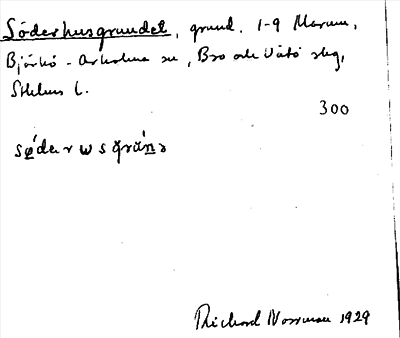 Söderhusgrundet, grund. 1-9 Marum,
Björkö-Arholma sn, Bro och Vätö skg,
Sthlms l.
300
Richard Norrman 1929